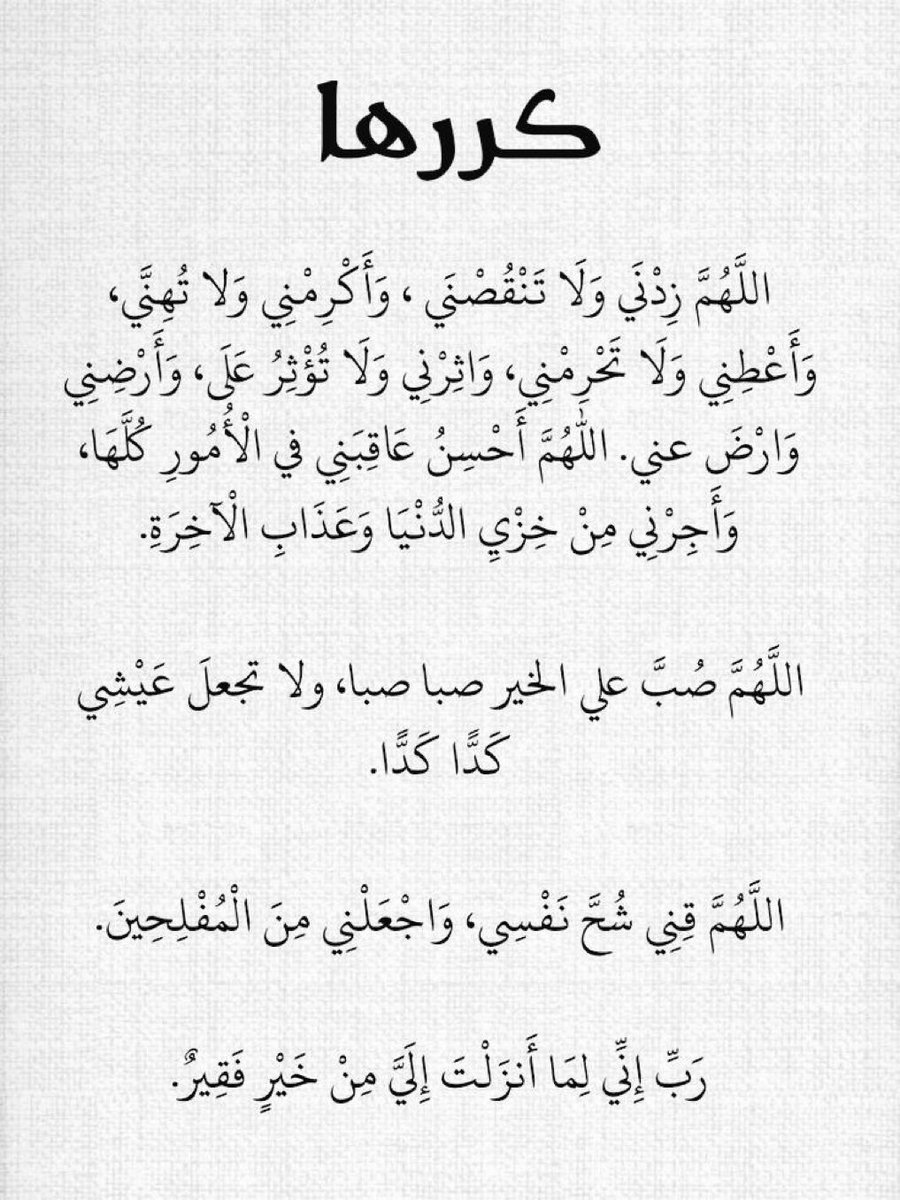 كررها
اللَّهُمَّ زِدْنَي وَلَا تَنْقُصْنَي ، وَأَكْرِمْنِي وَلا تُهِنَّي،
وَأَعْطِنِي وَلَا تَحْرِمْنِي، وَاثِرْنِي وَلَا تُؤْثِرُ عَلَى، وَأَرْضِنِي
وَارْضَ عني. اللَّهُمَّ أَحْسِنُ عَاقِبَنِي فِي الْأُمُورِ كُلَّهَا،
وَأَجِرْنِي مِنْ خِزْيِ الدُّنْيَا وَعَذَابِ الْآخِرَةِ.
اللَّهُمَّ صُبَّ علي الخير صبا صبا، ولا تجعلَ عَيْشِي
كَدًّا كَدًّا.
اللَّهُمَّ قِنِي شُحَّ نَفْسِي، وَاجْعَلْنِي مِنَ الْمُفْلِحِينَ.
رَبِّ إِنِّي لِمَا أَنزَلْتَ إِلَيَّ مِنْ خَيْرٍ فَقِيرٌ.